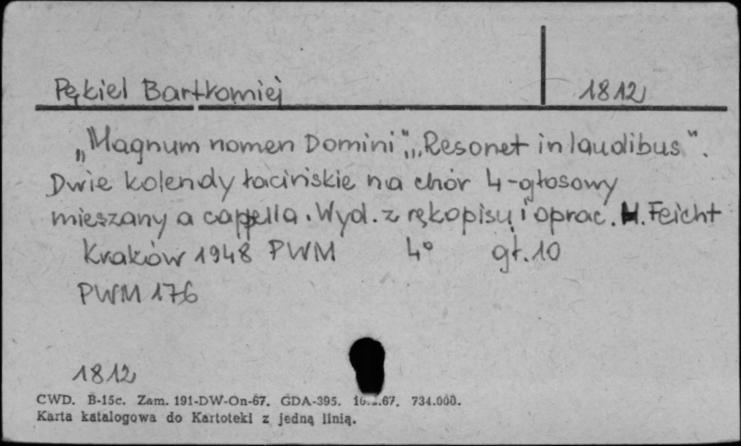 Pękiel Bartłomiej 1812
„Magnum nomen Domini”, „Resonet in laudibus”.
Dwie kolendy łacińskie na chór 4-głosowy
mieszany a cappella. Wyd. z rękopisu i oprac. H. Feicht
Kraków 1948 PWM 4° gł. 10
PWM 176
1812
CWD. B-15c. Zam. 191-DW-On-67. GDA-395. 67. 734.000.
Karta katalogowa do Kartoteki z jedną linią.